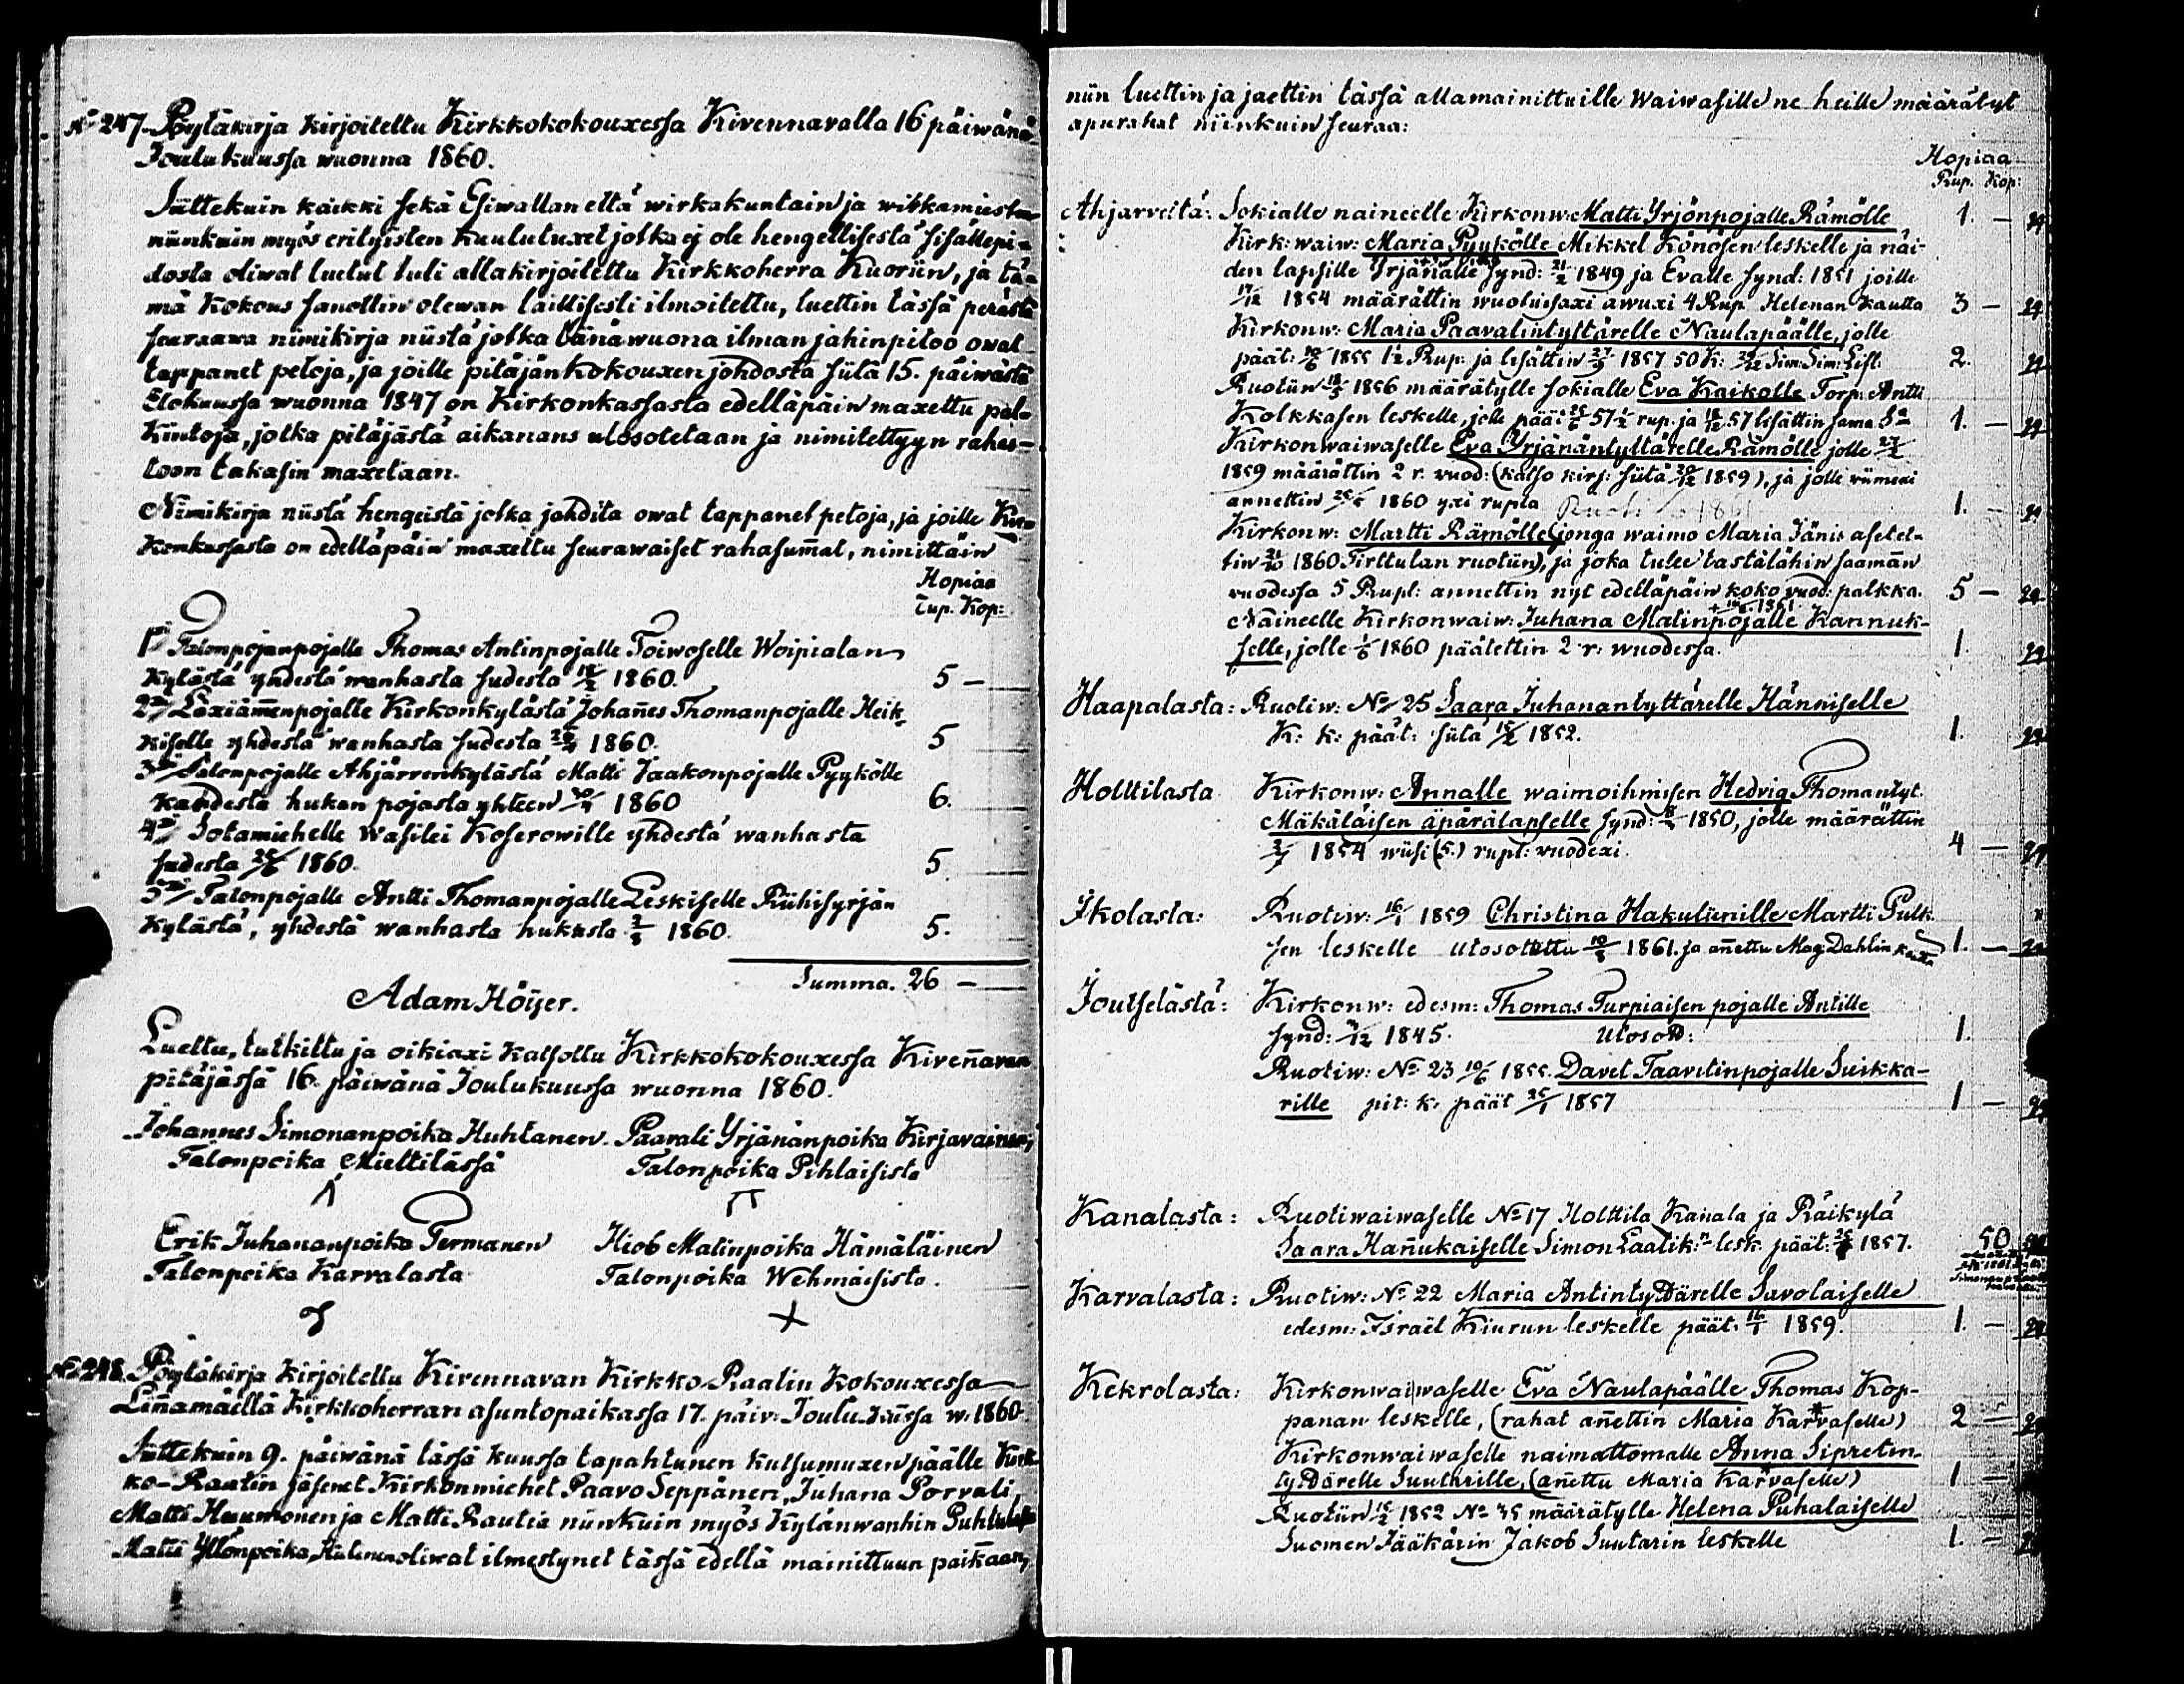 No 247. Pöytäkirja kirjoitettu Kirkkokokouxessa Kivennavalla 16 päiwänä
Joulukuussa wuonna 1860.
Siittekuin kaikki sekä Esiwallan että wirkakuntain ja wirkamiesten
niinkuin myös erityisten kuulutuxet jotka ej ole hengellisestä sisällepi-
dosta oliwat luetut tuli allakirjoitettu Kirkkoherra Kuoriin, ja tä-
mä Kokous sanottiin olewan laillisesti ilmoitettu, luettiin tässä perästä
seuraawa nimikirja niistä jotka tänäwuona ilman jahinpitoo owat
tappanet petoja, ja joille pitäjänkokouxen johdosta siitä 15. päiwästä
Elokuussa wuonna 1847 on Kirkonkassasta edelläpäin maxettu pal-
kintoja, jotka pitäjästä aikanans ulosotetaan ja nimitettyyn rahas-
toon takasin maxetaan.
Nimikirja niistä hengeistä jotka jahdita owat tappanet petoja, ja joille Kir-
konkassasta on edelläpäin maxettu seurawaiset rahasum̄at, nimittäin
Hopiaa
Rup. Kop:
1o/ Talonpojanpojalle Thomas Antinpojalle Toiwoselle Woipialan
kylästä yhdestä wanhasta sudesta 18/2 1860. 5 —
2o/ Laxiäm̄enpojalle Kirkonkylästä Johan̄es Thomanpojalle Heik-
kiselle yhdestä wanhasta sudesta 1860. 5
3o/ Talonpojalle Ahjärvenkylästä Matti Jaakonpojalle Pyykölle
kahdesta hukan pojasta yhteen 1860 6.
4o/ Sotamiehelle Wasilei Koserowille yhdestä wanhasta
sudesta 25/6 1860. 5.
5o/ Talonpojalle Antti Thomanpojalle Leskiselle Riihisyrjän
kylästä, yhdestä wanhasta hukasta 1860. 5.
Summa. 26 —
Adam Höijer.
Luettu, tutkittu ja oikiaxi katsottu Kirkkokokouxessa Kiven̄avan
pitäjässä 16. päiwänä Joulukuussa wuonna 1860.
Johannes Simonanpoika Huhtanen. Paavali Yrjänänpoika Kirjavainen,
Talonpoika Miettilässä Talonpoika Pihlaisista
Erik Juhananpoika Termanen Hiob Matinpoika Hämäläinen
Talonpoika Karvalasta Talonpoika Wehmäisistä.
No 248. Pöytäkirja kirjoitettu Kivennavan Kirkko-Raatin kokouxessa
Lin̄amäellä Kirkkoherran asuntopaikassa 17. päiw: Joulukuussa w. 1860.
Siittekuin 9. päiwänä tässä kuussa tapahtunen kutsumuxen päälle Kirk-
ko-Raatin jäsenet Kirkonmiehet Paavo Seppänen, Juhana Porvali,
Matti Huumonen ja Matti Rautia niinkuin myös Kylänwanhin
Matti Yllönpoika oliwat ilmestynet tässä edellä mainittuun paikkaan,
niin luettiin ja jaettiin tässä allamainittuille Waiwasille ne heille määrätyt
apurahat niinkuin seuraa:
Hopiaa
Rup. Kop:
Ahjarveltä: Sokialle naineelle Kirkonw: Matti Yrjönpojalle Rämölle 1. —
Kirk: waiw: Maria Pyykölle Mikkel Könösen leskelle ja näi-
den lapsille Yrjänälle synd: 21/2 1849 ja Evalle synd: 1851 joille
17/12 1854 määrättiin wuotuisaxi awuxi 4 Rup. Helenan kautta 3 —
Kirkonw: Maria Paavalintyttärelle Naulapäälle, jolle
päät: 10/6 1855 1½ Rup: ja lisättiin 1857 50 K: 2.
Ruotiin 1856 määrätylle sokialle Eva Kaikolle Torp: Antti
Kolkkasen leskelle, jolle pää: 57 ½ rup. ja 57 lisättiin sama 1. —
Kirkonwaiwaselle Eva Yrjänäntyttärelle Rämölle jolle
1859 määrättiin 2 r. vuod: (katso kirj: siitä 1859), ja jolle viimexi
annettiin 1860 yxi rupla 1. —
Kirkonw: Martti Rämölle (jonga waimo Maria Jänis asetet-
tiin 21/10 1860 Tirttulan ruotiin), ja joka tulee tästälähin saamān
vuodessa 5 Rupl: annettiin nyt edelläpäin koko vuod: palkka. 5 —
Naineelle Kirkonwaiw: Juhana Matinpojalle Kannuk-
selle, jolle 1860 päätettiin 2 r: wuodessa. 1.
Haapalasta: Ruotiw: No 25 Saara Juhanantyttärelle Hänniselle
K: k: päät: siitä 15/2 1852. 1.
Holttilasta Kirkonw: Annalle waimoihmisen Hedvig Thomantyt.
Mäkäläisen äpärälapselle synd: 1850, jolle määrättiin
1854 wiisi (5.) rupl: vuodexi. 4 —
Ikolasta: Ruotiw: 16/1 1859 Christina Hakulinille Martti Pulk-
sen leskelle ulosotettu 1861. ja an̄ettu Mag. Dahlin kautta 1. —
Joutselästä: Kirkonw: edesm: Thomas Turpiaisen pojalle Antille
synd: 1845. Ulosott: 1.
Ruotiw: No 23 10/6 1855. Davet Taavetinpojalle Suikka-
rille pit: k: päät 25/1 1857 1 —
Kanalasta: Ruotiwaiwaselle No 17 Holttila Kanala ja Räikylä
Saara Han̄ukaiselle Simon Laatik:n lesk. päät: 1857. 50
Karvalasta: Ruotiw: No 22 Maria Antintyttärelle Savolaiselle
edesm: Israël Kiurun leskelle päät: 16/1 1859. 1. —
Kekrolasta: Kirkonwaiwaselle Eva Naulapäälle Thomas Kop-
panan leskelle, (rahat an̄ettiin Maria Karvaselle) 2 —
Kirkonwaiwaselle naimattomalle Anna Sipretin-
tyttärelle Suutarille, (an̄ettu Maria Karvaselle) 1 —
Ruotiin 15/2 1852 No 35 määrätylle Helena Puhalaiselle
Suomen Jääkärin Jakob Suutarin leskelle 1. —